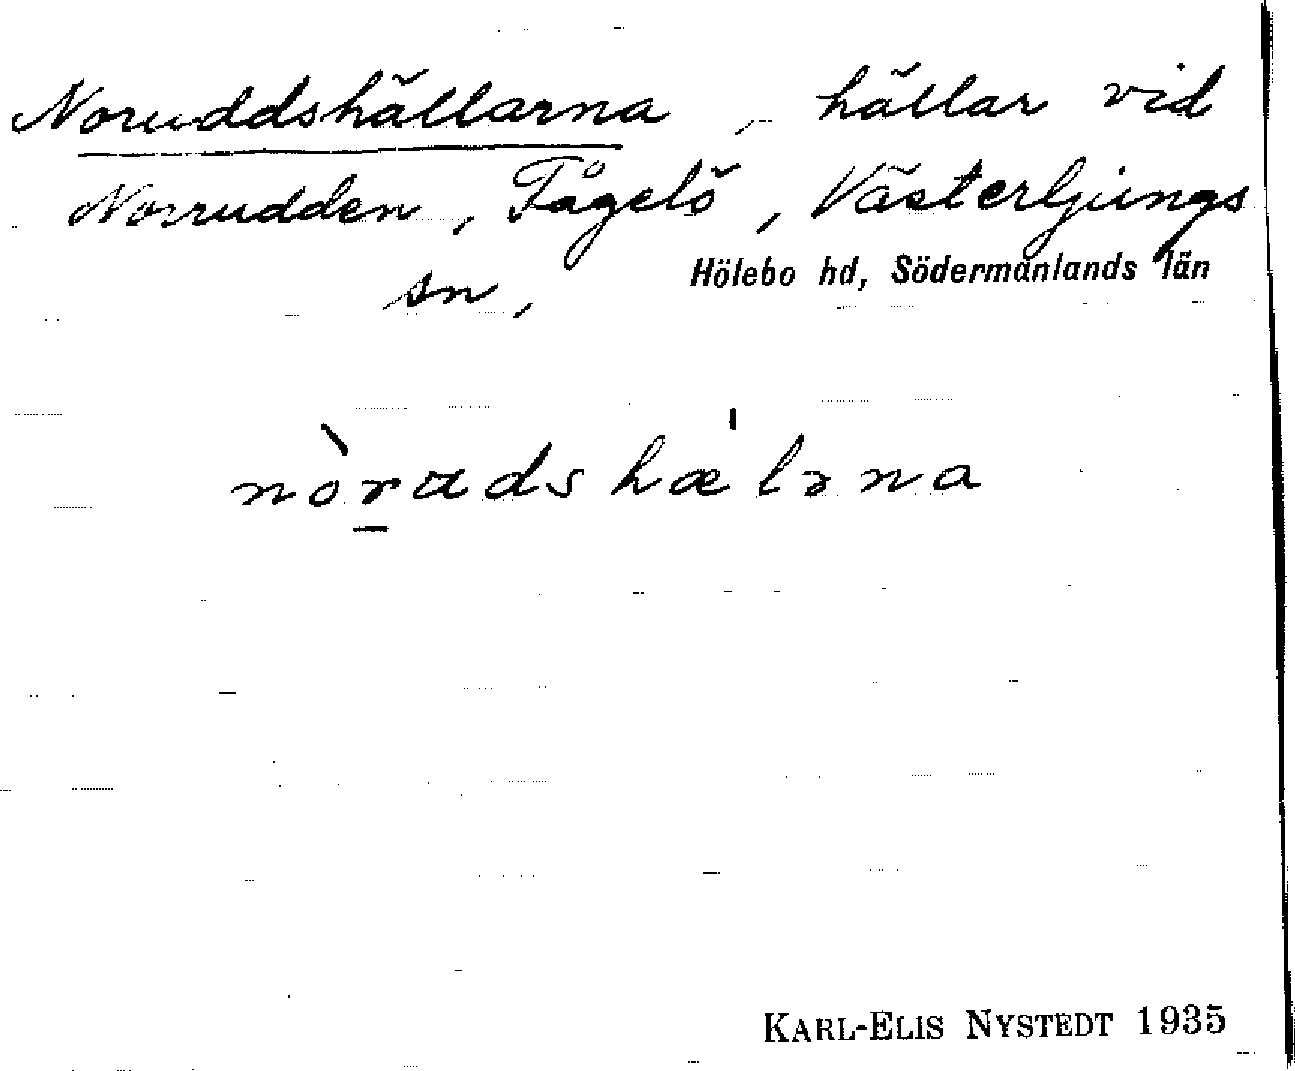 Noruddshällarna, hällar vid
Norrudden, Fågelö, Västerljungs
sn, Hölebo hd, Södermanlands län
nòrudshæləna
KARL-ELIS NYSTEDT 1935